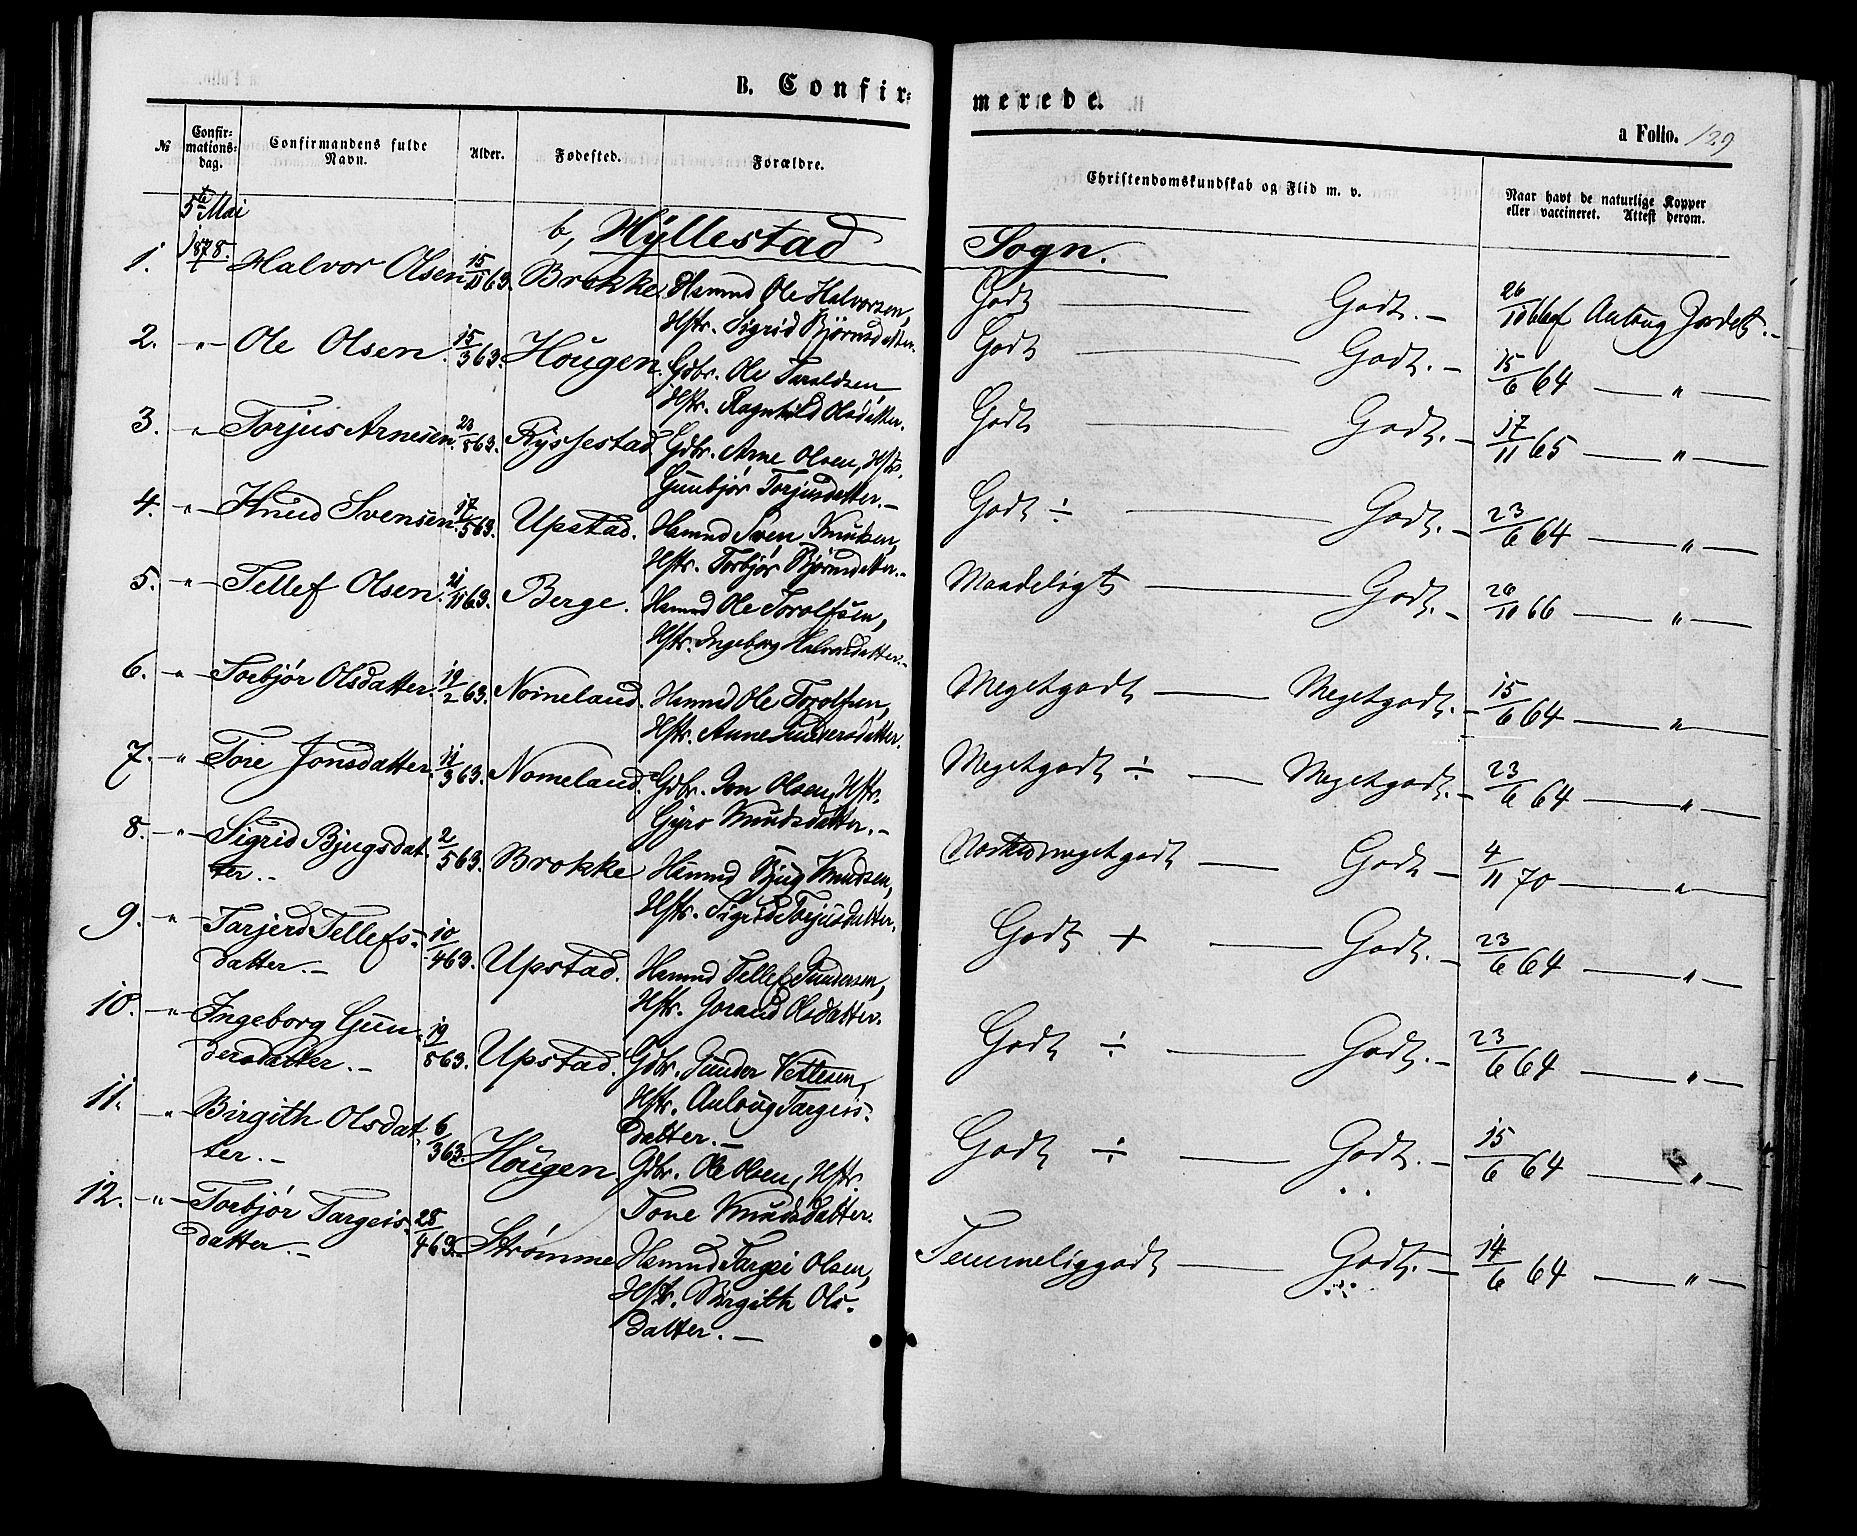 B. Confir=merede.
a Folio. 129
№ Confir=mations=dag. Confirmandens fulde Navn. Alder. Fødested. Forældre. Christendomskundskab og Flid m. v. Naar havt de naturlige Kopper eller vaccineret. Attest herom.
5te Mai 1878.
b, Hyllestad Sogn.
1. Halvor Olsen 15/11 63. Brokke Hsmnd Ole Halvorsen, Godt — Godt. — 26/10 66 af Auloug Jordet. -
Hstr. Sigrid Bjørnsdatter.
2. -"- Ole Olsen. 15/3 63. Hougen. Gdbr. Ole Taraldsen, Godt — Godt. — 15/6 64 — " —
Hstr. Ragnhild Olsdatter.
3. " Torjus Arnesen. 23/8 63. Ryssestad Gdbr. Arne Olsen, Hstr. Godt — Godt. — 17/11 65 — " —
Gunbjør Torjusdatter. —
4. " Knud Svensen 17/5 63. Upstad. Hsmnd Sven Knutsen, Godt ÷ — Godt. — 23/6 64 — " —
Hstr. Torbjør Bjørnsdatter. -
5. -"- Tellef Olsen. 21/11 63. Berge. Hsmnd Ole Torolfsen, Maadeligt — Godt. — 26/10 66 — " —
Hstr. Ingeborg Halvorsdatter. -
6. -"- Torbjør Olsdatter. 19/2 63. Nomeland. Hsmnd Ole Torolfsen, Megetgodt — Megetgodt. — 15/6 64 — " —
Hstr. Anne Gundersdatter.
7. -" Tore Jonsdatter. 11/3 63. Nomeland. Gdbr. Jon Olsen, Hstr. Megetgodt ÷ — Megetgodt. — 23/6 64 — " —
Gyro Knudsdatter. -
8. -"- Sigrid Bjugsdat 2/5 63. Brokke Hsmnd Bjug Knudsen, megetgodt — Godt — 4/11 70 — " —
ter. - Hstr. Sigrid Torjusdatter.
9. -" Tarjerd Tellefs- 10/4 63. Upstad. Hsmnd Tellef Gundersen, Godt + — Godt. — 23/6 64 — " —
datter. - Hstr. Gorand Olsdatter.
10. -"- Ingeborg Gun 19/8 63. Upstad. Gdbr. Gunder Vettesen, Godt ÷ — Godt. — 23/6 64 — " —
dersdatter. - Hstr. Aaloug Targeis-
datter. —
11. -" Birgith Olsdat 6/3 63. Hougen Gdbr. Ole Olsen, Hstr. Godt ÷ — Godt. — 15/6 64 — " —
ter. - Tone Knudsdatter.
12. -"- Torbjør Targeis 28/4 63. Strømme Hsmnd Targei Olsen, Temmeliggodt — Godt. — 14/6 64 — " —
datter. - Hstr. Birgith Ols-
datter. —